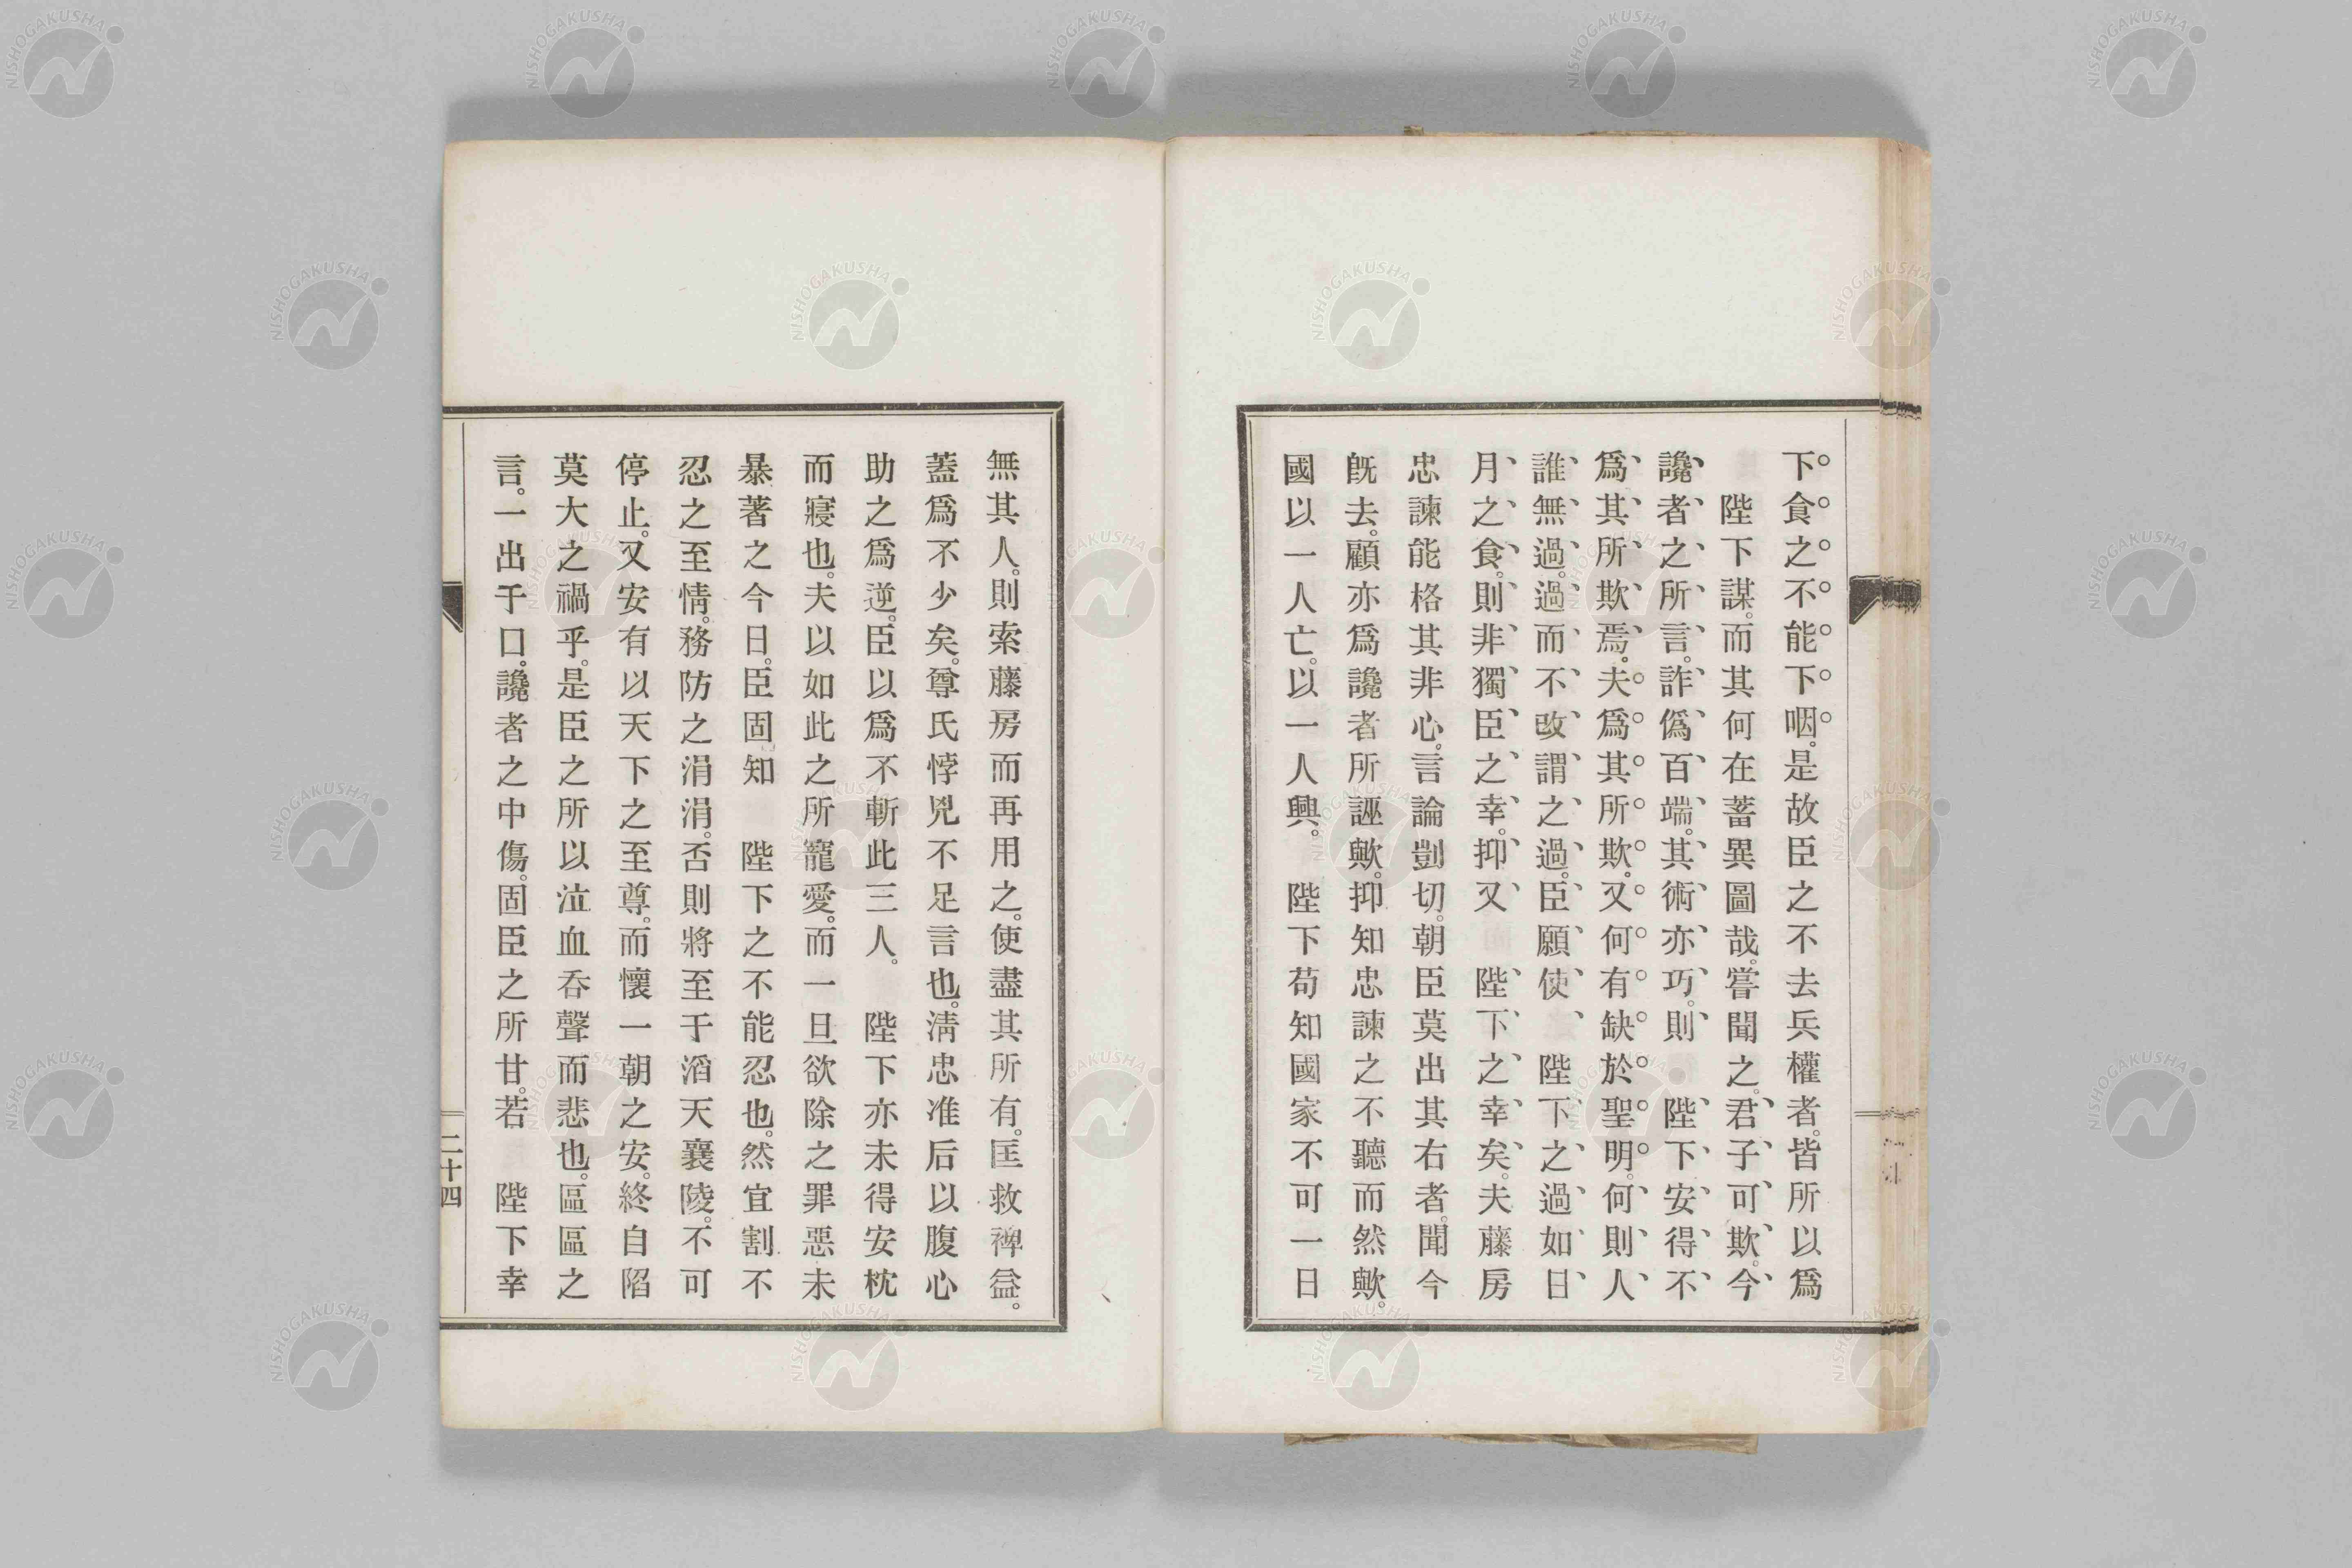 下食之不能下咽。是故臣之不去兵權者。皆所以爲
陛下謀。而其何在蓄異圖哉。嘗聞之。君子可欺。今
讒者之所言。詐僞百端。其術亦巧。則 陛下安得不
爲其所欺焉。夫爲其所欺。又何有缺於聖明。何則人
誰無過。過而不改謂之過。臣願使 陛下之過如日
月之食。則非獨臣之幸。抑又 陛下之幸矣。夫藤房
忠諫能格其非心。言論剴切。朝臣莫出其右者。聞今
既去。顧亦爲讒者所誣歟。抑知忠諫之不聽而然歟。
國以一人亡。以一人興。 陛下苟知國家不可一日
無其人。則索藤房而再用之。使盡其所有。匡救裨益。
蓋爲不少矣。尊氏悖兇不足言也。淸忠准后以腹心
助之爲逆。臣以爲不斬此三人。 陛下亦未得安枕
而寢也。夫以如此之所寵愛。而一旦欲除之罪惡未
暴著之今日。臣固知 陛下之不能忍也。然宜割不
忍之至情。務防之涓涓。否則將至于滔天襄陵。不可
停止。又安有以天下之至尊。而懷一朝之安。終自陷
莫大之禍乎。是臣之所以泣血呑聲而悲也。區區之
言。一出于口。讒者之中傷。固臣之所甘。若 陛下幸
二十四
NISHOGAKUSHA